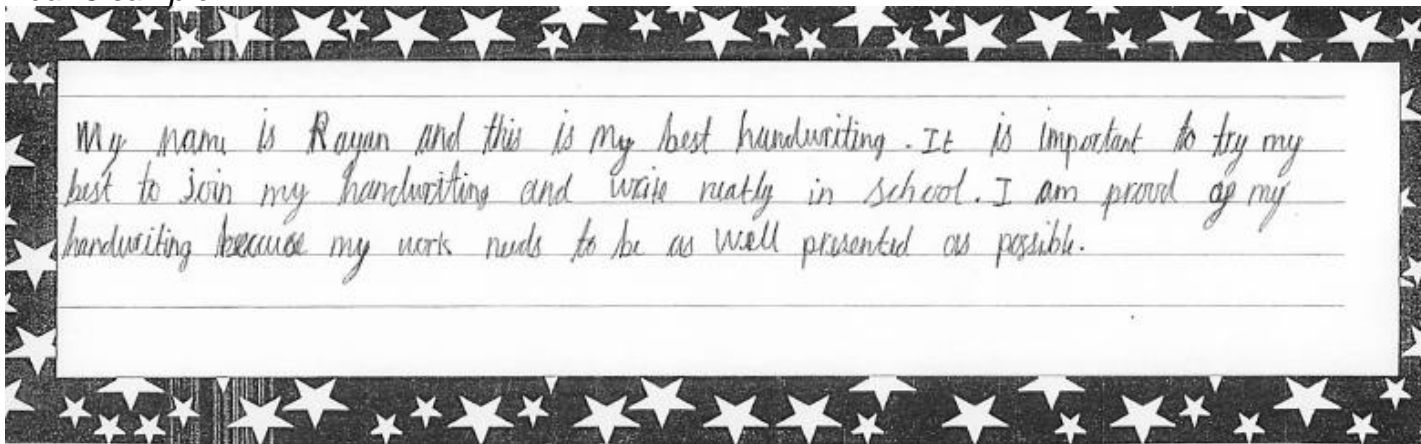 My name is Rayan and this is my best handwriting. It is important to try my
best to join my handwriting and write neatly in school. I am proud of my
handwriting because my work needs to be as well presented as possible.